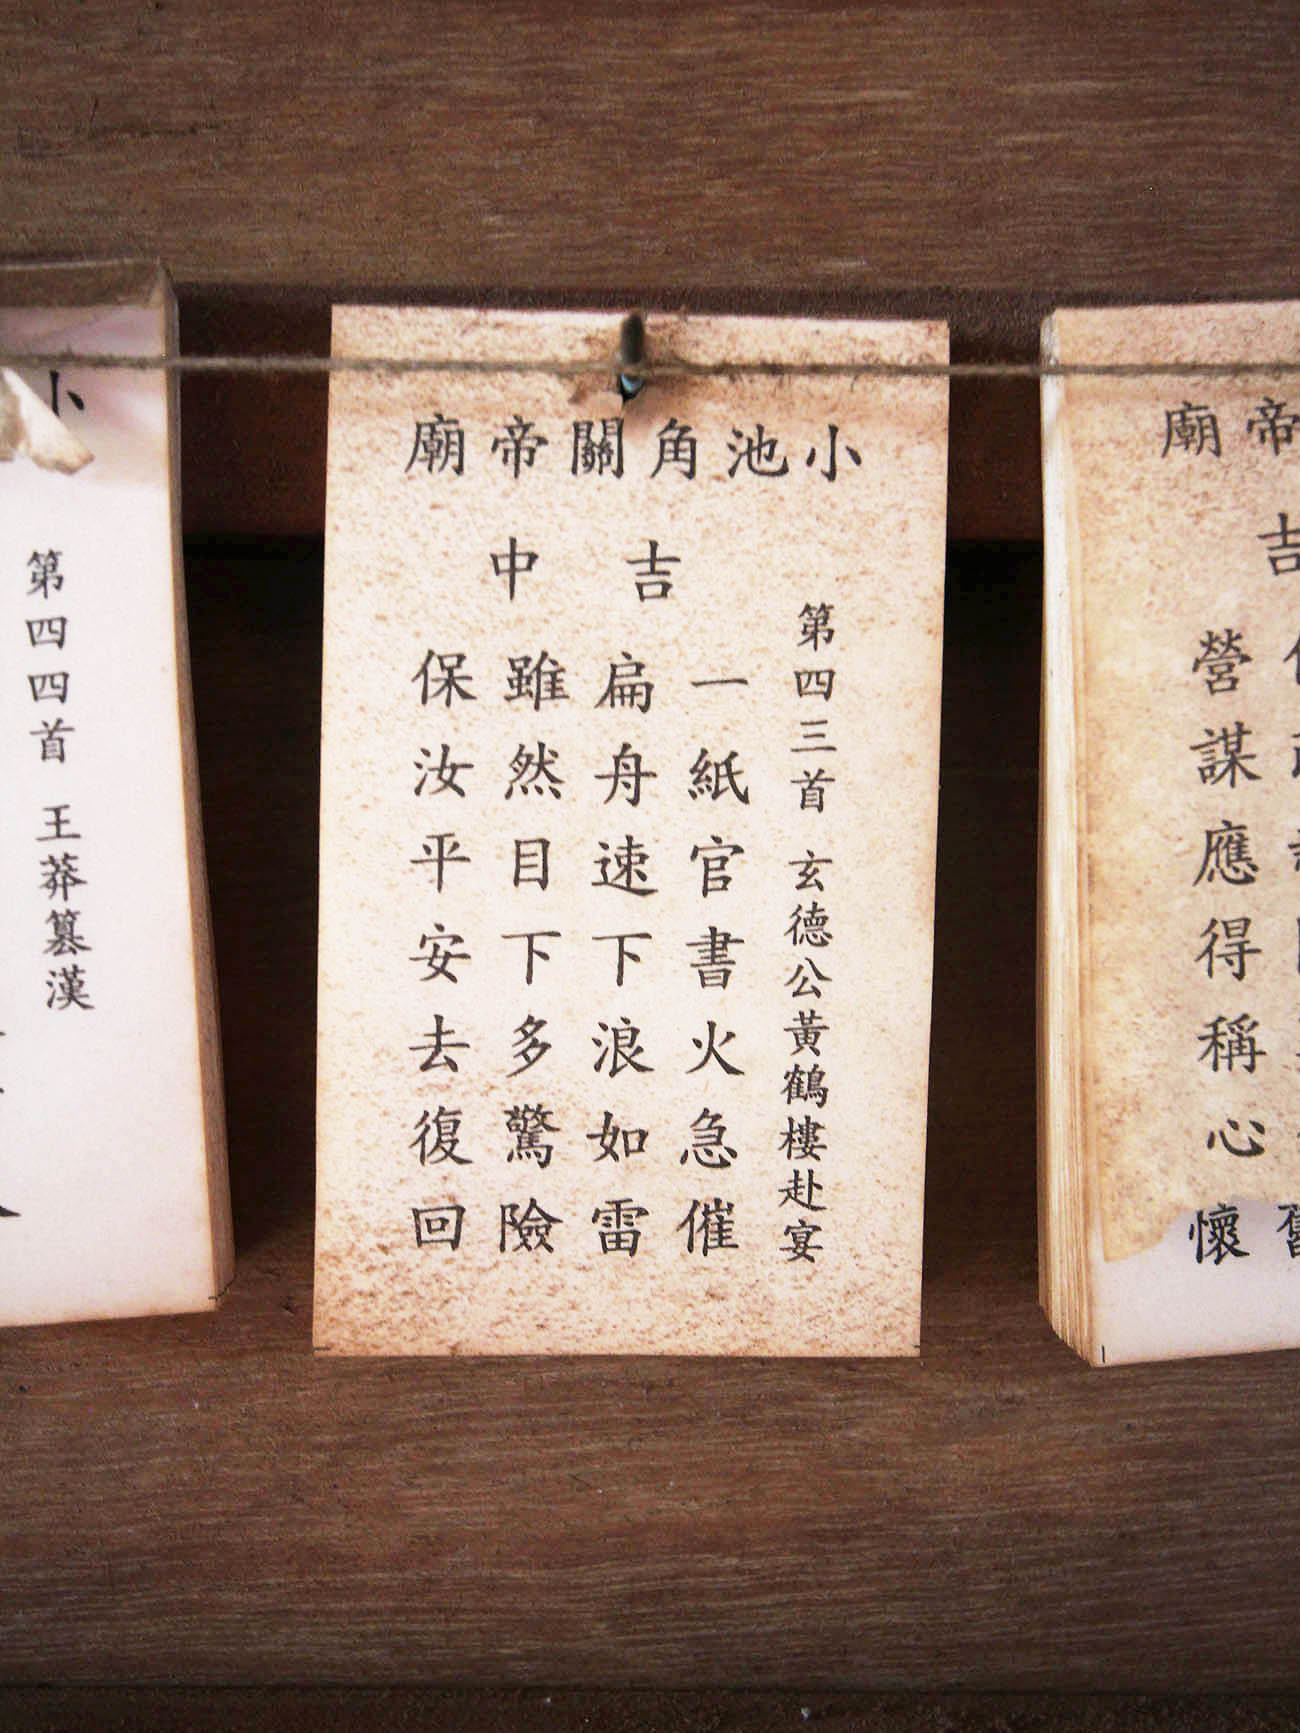 帝廟
吉
舊
營謀應得稱心懷
小池角關帝廟
吉中
第四三首 玄德公黃鶴樓赴宴
一紙官書火急催
扁舟速下浪如雷
雖然目下多驚險
保汝平安去復回
小
第四四首 王莽篡漢